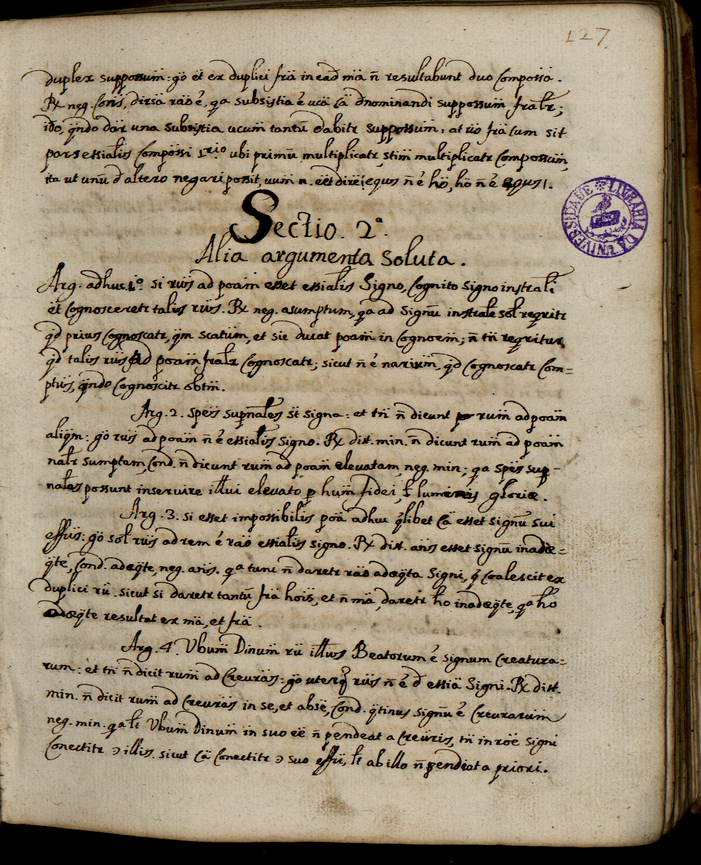 127
duplex suppositum: gö et ex duplici frä in eäd mä ñ resultabunt duo composä.
Rx neg. Coñs, dirsä räö é, qa subsistia é ucä Cä dnominandi suppossum fralr;
iðo, qñdo där una subsistia ucum tantú dabitr suppossum, at üo frä cum sit
pars essialis compossi 1.rio ubi primú multiplicatr, stim multiplicatr compossum,
ita ut unú d altero negari possit, uum n. est dire; equs ñ é hö, ho ñ é equs 1.
Sectio. 2ª
Alia argumenta soluta.
Arg. adhuc 1.º si rüs ad poäm esset essialis Signo, Cognito signo instrali
et Cognosceretr talis rüs. Rx neg. asumptum, qa ad Signú instrale sol reqritr
qd prius Cognoscatr, qm scatum, et sic ducat poäm in Cognorm; ñ tñ reqritur,
qd talis rüs ad poäm fralr Cognoscatr; sicut ñ é narium, qd Cognoscatr Com=
ptüs, qñdo Cognoscitr obtm.
Arg. 2. speïs supnäles st signa: et tñ ñ dicunt rum ad poäm
aliqm: gö rüs ad poäm ñ é essialis signo. Rx dist. min. ñ dicunt rum ad poäm
nalr sumptam, Cond. ñ dicunt rum ad poäm elevatam, neg. min; qa speïs sup-
nales possunt inservire illui elevato p hum fidei, l luminis gloriæ.
Arg. 3. si esset impossibilis poä adhuc qlibet Cä esset signú sui
effüs: gö sol rüs ad rem é räö essialis signo. Rx dist. añs esset signú inadæ=
qte, Cond. adæqte, neg. añs. qa tunc ñ daretr räö adæqta Signi, q Coalescit ex
duplici rü. sicut si daretr tantú frä hois, et ñ mä, daretr ho inadæqte, qa ho
adæqte resultat ex mä, et frä.
Arg. 4. Vbum Dinum rü illius Beatorum é signum creatura=
rum: et tñ ñ dicit rum ad Creuräs: gö uterq rüs ñ é d essiä Signi. Rx dist.
min. ñ dicit rum ad Creuräs in se, et absé, Cond. qtinus signú é Creurarum
neg. min. qa li Vbum Dinum in suo eé ñ pendeat a Creüris, tñ in röe signi
Conectitr ɔ illis. sicut Cä Conectitr ɔ suo effü, li ab illo ñ pendeat a priori.
LIVRARIA DA UNIVERSIDADE